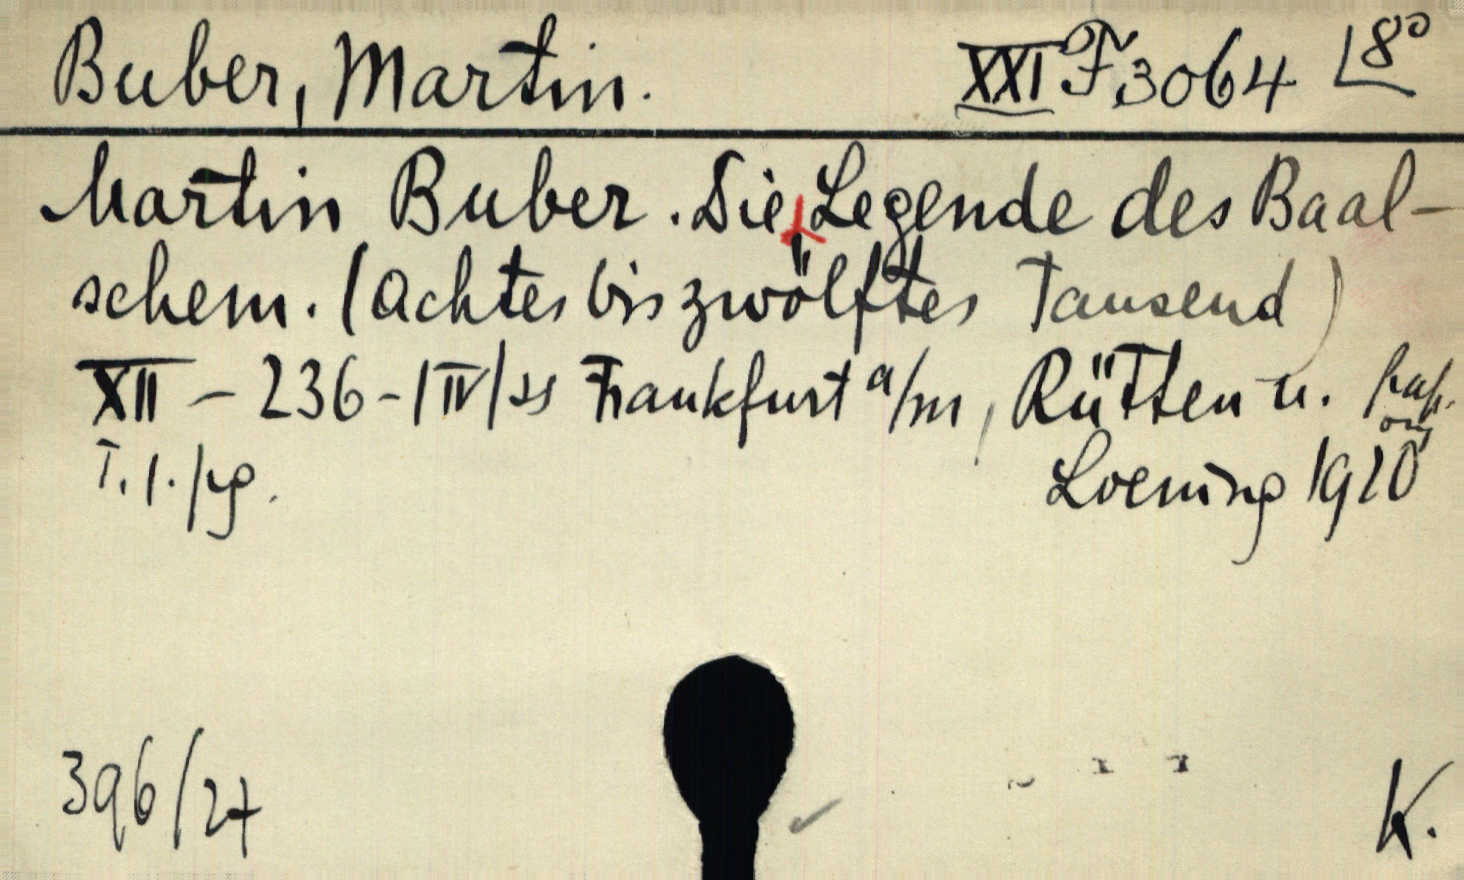 Buber, Martin. XXI F 3064 8°
Martin Buber. Die Legende des Baal-
schem. (Achtes bis zwölftes Tausend)
XII - 236 - IIV/ss Frankfurt a/m, Rütten u.
T. 1. pg. Loening 1920
396/27 K.